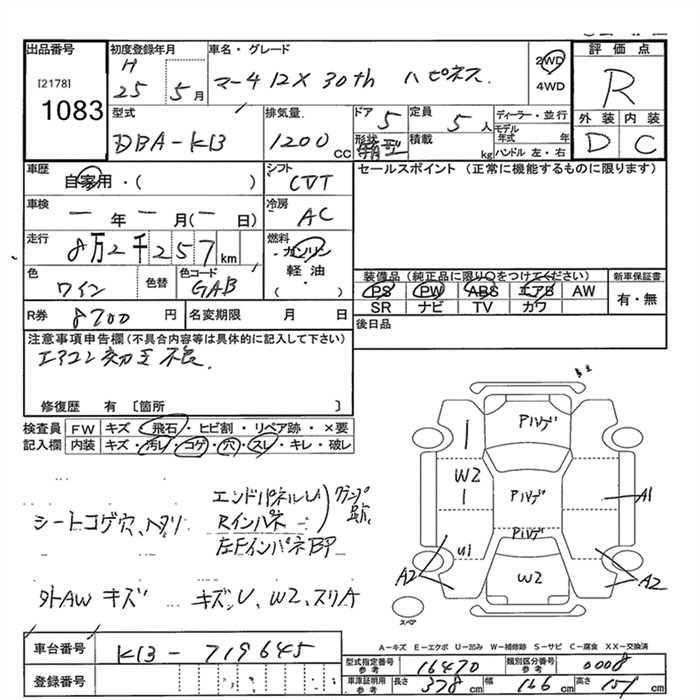 出品番号
[2178]
1083
初度登録年月
H 25 5月
車名・グレード
マーチ 12X 30th ハピネス
2WD
4WD
評価点
R
外装 内装
D C
型式
DBA-K13
排気量
1200 CC
ドア 5
形状
定員 5人
積載 kg
ディーラー・並行
モデル年式 年
ハンドル 左・右
車歴
自家用・( )
シフト
CVT
セールスポイント (正常に機能するものに限ります)
車検
一年 一月(一日)
冷房
AC
走行
8万2千257km
燃料
ガソリン
軽油
( )
色
ワイン
色替
色コード
GAB
装備品(純正品に限り○をつけてください)
PS PW ABS エアB AW
SR ナビ TV カワ
新車保証書
有・無
R券 8700円
名変期限 月 日
後日品
注意事項申告欄(不具合内容等は具体的に記入して下さい)
エアコン 不良.
修復歴 有 〔箇所 〕
検査員 FW キズ・飛石・ヒビ割・リペア跡・×要
記入欄 内装 キズ・汚レ・コゲ・穴・スレ・キレ・破レ
シートコゲ穴、ヘタリ
エンドパネルU
Rインパネ
左FインパネBP
クランプ跡
外AW キズ
キズ、U、W2、スリA
Pハゲ
W2
Pハゲ
A1
Pハゲ
U1
A2
W2
A2
スペア
A-キズ E-エクボ U-凹み W-補修跡 S-サビ C-腐食 XX-交換済
車台番号 K13-719645
登録番号
型式指定番号参考 16470
類別区分番号参考 0008
車庫証明用参考 長さ 378cm 幅 166cm 高さ 151cm